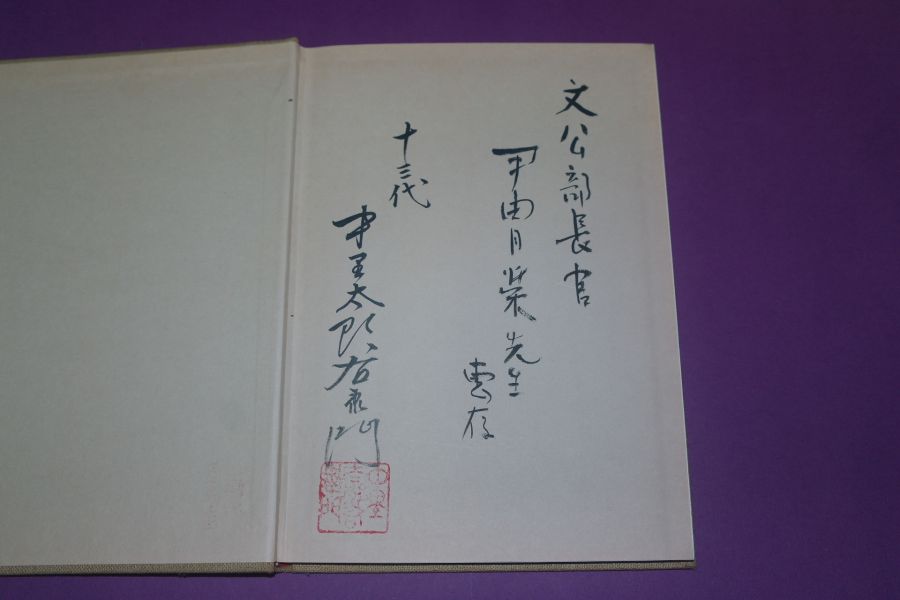 文公部長官
尹冑榮先生
惠存
十三代
中里太郎右衛門